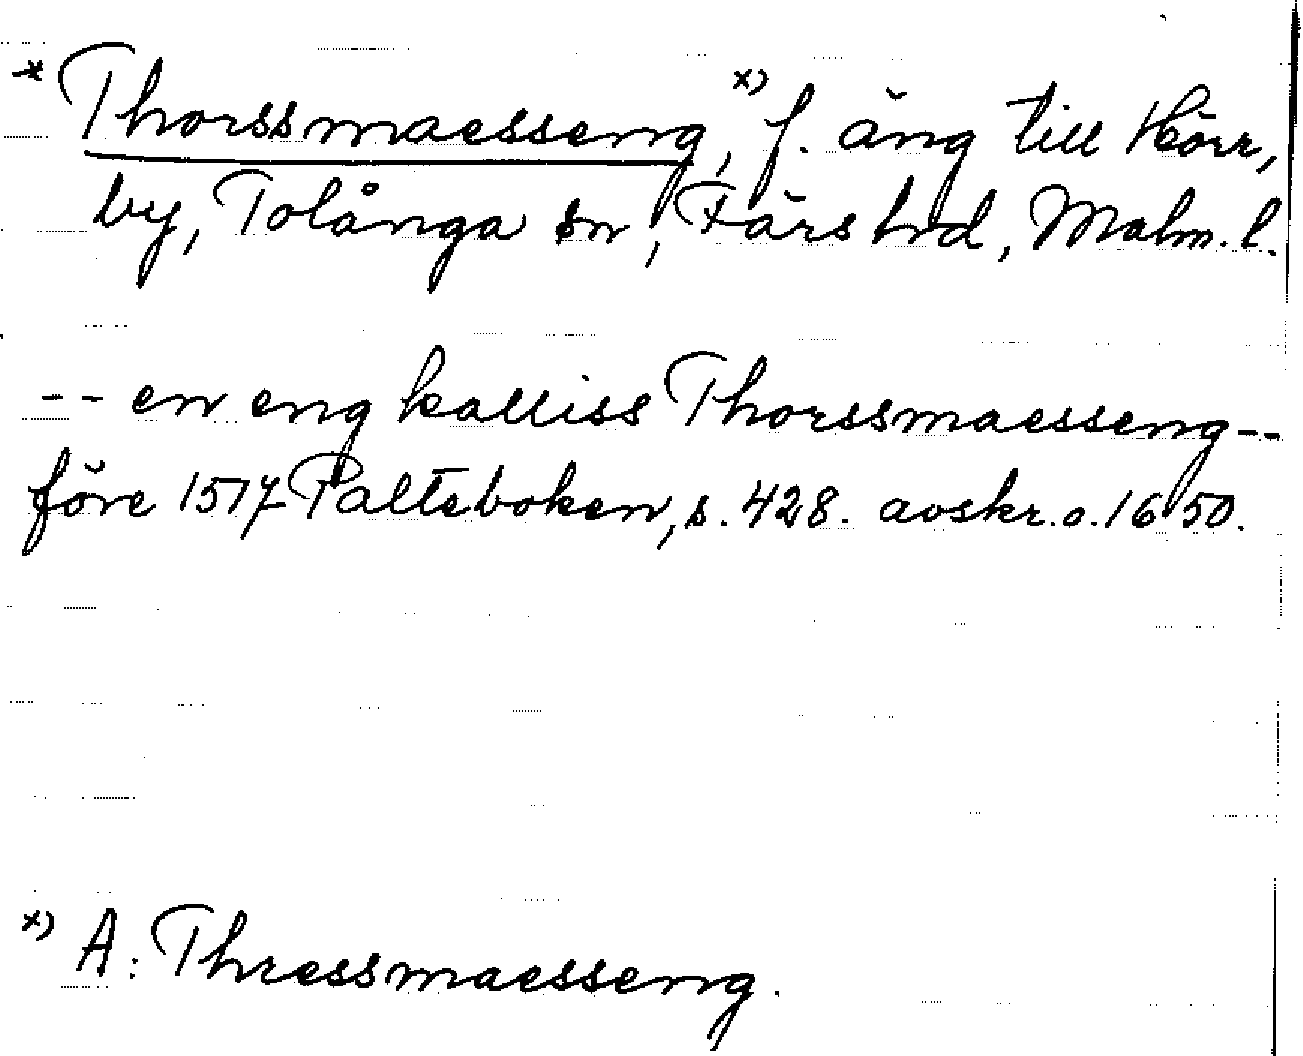 * Thorssmaesseng, x) f. äng till Hörr,
by, Tolånga sn, Färs hrd, Malm. l.
-- en eng kalliss Thorssmaesseng --
före 1517 Palteboken, s. 428. avskr. o. 1650.
x) A: Thressmaesseng.